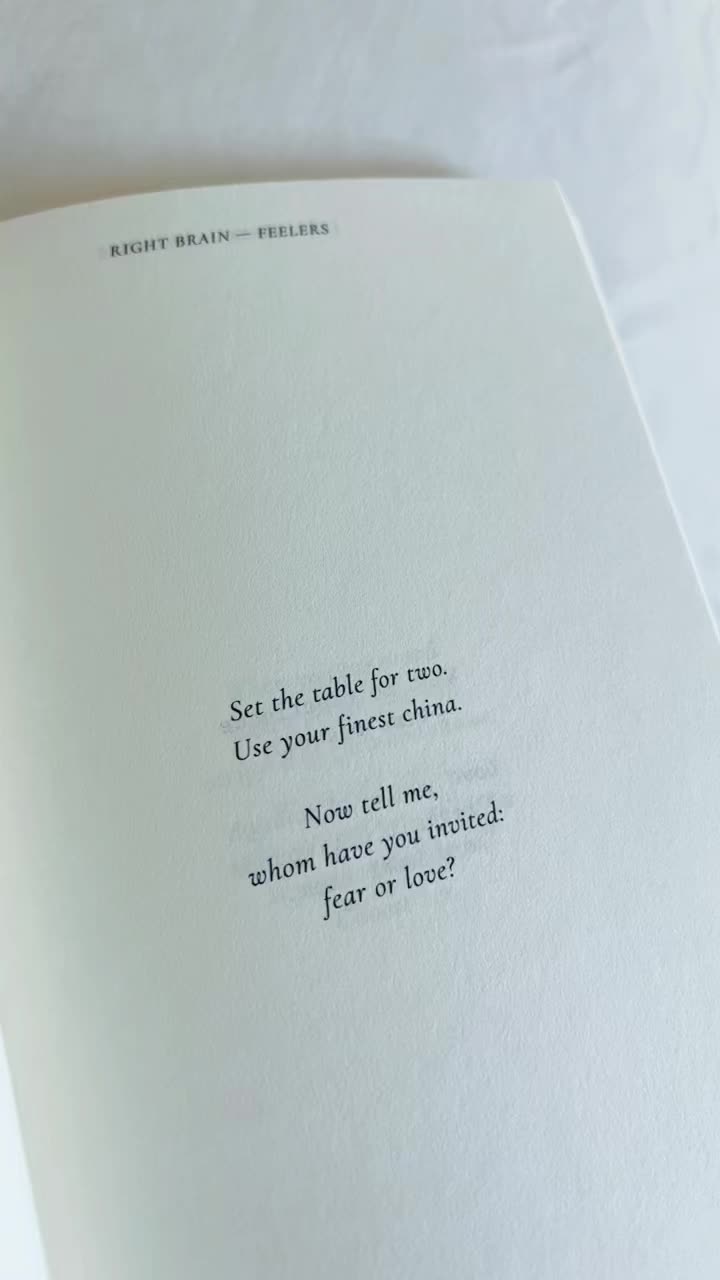 RIGHT BRAIN — FEELERS
Set the table for two.
Use your finest china.
Now tell me,
whom have you invited:
fear or love?